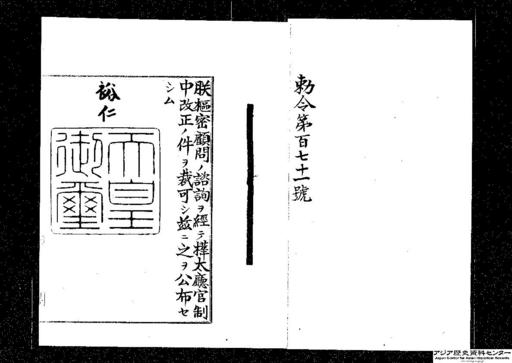 勅令第百七十一號
朕樞密顧問ノ諮詢ヲ經テ樺太廳官制
中改正ノ件ヲ裁可シ茲ニ之ヲ公布セ
シム
裕仁
天皇
御璽
アジア歴史資料センター
Japan Center for Asian Historical Records